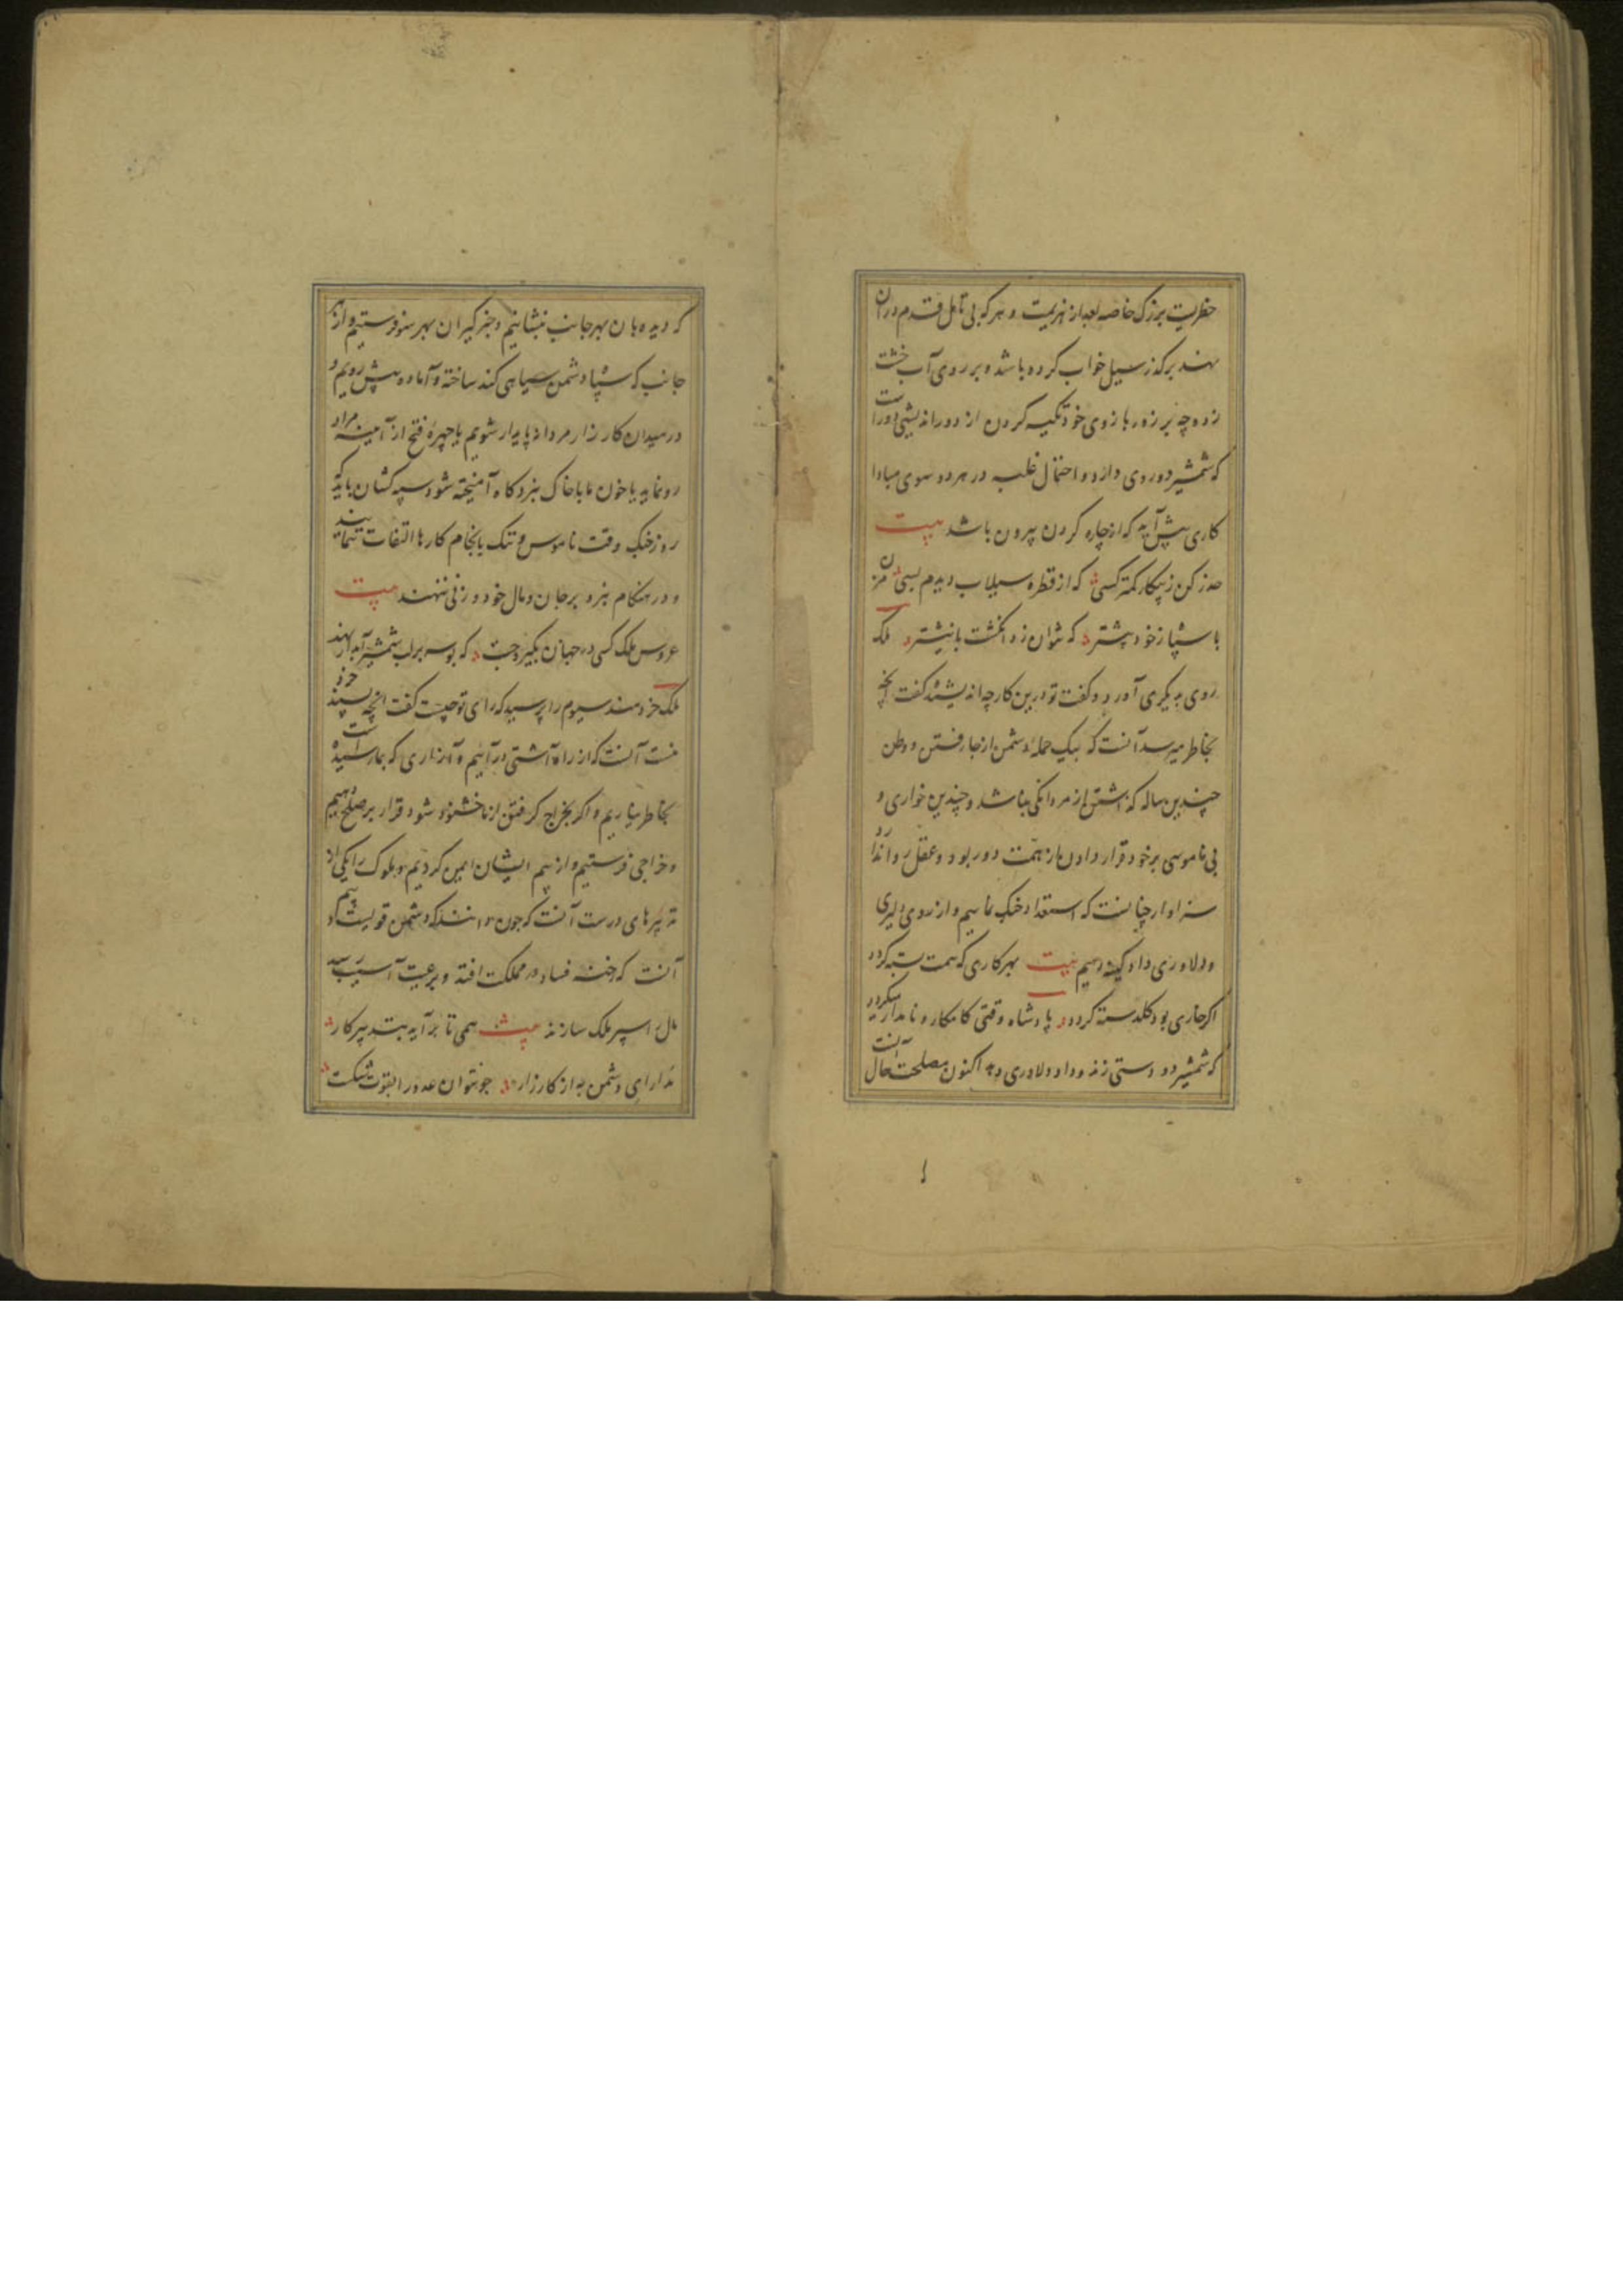 خطریست بزرگ خاصه بعد از هزیمت و هر که بی تامل قدم در آن
نهد بر گذر سیل خواب کرده باشد و بر روی آب خشت
زده چه بر زور بازوی خود تکیه کردن از دوراندیشی دور است
که شمشیر دو روی دارد و احتمال غلبه در هر دو سوی مبادا
کاری پیش آید که از چاره کردن بیرون باشد بیت
حذر کن ز پیکار کمتر کسی که از قطره سیلاب دیدم بسی مزن
با سپاه ز خود بیشتر که نتوان زد انگشت با نیشتر ملک
روی به دیگری آورد و گفت تو درین کار چه اندیشیدهٔ گفت آنچه
بخاطر میرسد آنست که بیک حملهٔ دشمن از جا رفتن و وطن
چندین ساله گذاشتن از مردانگی نباشد و چندین خواری و
بی ناموسی بر خود قرار دادن از همت دور بود و عقل روا ندارد
سزاوار چنانست که استعداد جنگ نماییم و از روی دلیری
و دلاوری داد کینه دهیم بیت بهر کاری که همت بسته گردد
اگر خاری بود گلدسته گردد پادشاه وقتی کامکار و نامدار میگردد
که شمشیر دو دستی زند و داد دلاوری دهد اکنون مصلحت حال آنست
که دیده بان بهر جانب بنشانیم و خبرگیران بهر سو فرستیم و از هر
جانب که سپاه دشمن سیاهی کند ساخته و آماده پیش رویم و
در میدان کارزار مردانه پایدار شویم یا چهرهٔ فتح از آینه مراد
رو نماید یا خون ما با خاک نبردگاه آمیخته شود سپه کشان باید که
روز جنگ و وقت ناموس و ننگ بانجام کارها التفات ننمایند
و در هنگام نبرد بر جان و مال خود وزنی ننهند بیت
عروس ملک کسی در جهان بگیرد چست که بوسه بر لب شمشیر آبدار نهد
ملک خردمند سیوم را پرسید که رای تو چیست گفت آنچه پسند خرد
منست آنست که از راه آشتی درآییم و آزاری که بما رسیده است
بخاطر نیاریم و اگر بخراج گرفتن از ما خشنود شود قرار بر صلح دهیم
و خراجی فرستیم و از بیم ایشان ایمن گردیم و ملوک را یکی از
تدبیرهای درست آنست که چون دانند که دشمن قویست و بیم
آنست که رخنه فساد در مملکت افتد و برعیت آسیب رسد
مال را سپر ملک سازند بیت همی تا برآید بتدبیر کار
مدارای دشمن به از کارزار چو نتوان عدو را بقوت شکست